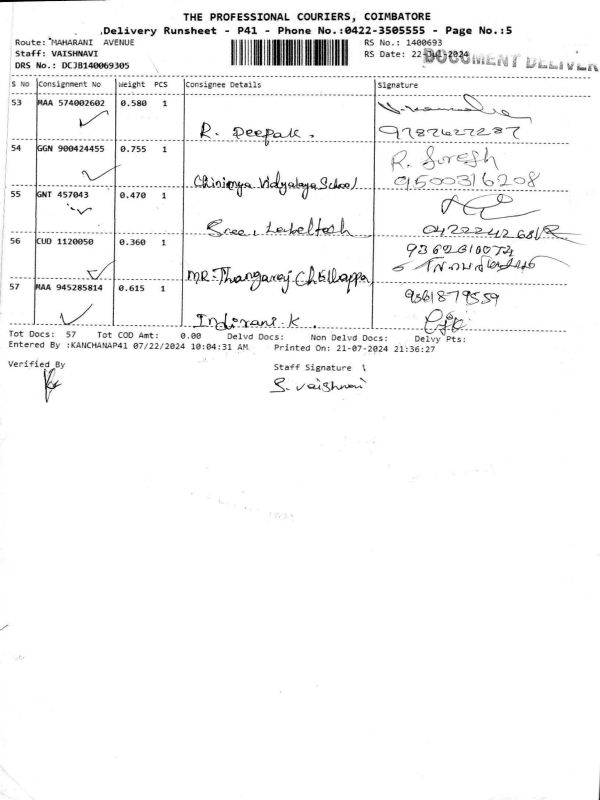 THE PROFESSIONAL COURIERS, COIMBATORE
Delivery Runsheet - P41 - Phone No.:0422-3505555 - Page No.:5
Route: MAHARANI AVENUE RS No.: 1400693
Staff: VAISHNAVI RS Date: 22-Jul-2024 DOCUMENT DELIVER
DRS No.: DCJB140069305
S No Consignment No Weight PCS Consignee Details Signature
53 MAA 574002602 0.580 1
R. Deepak. 9787627287
54 GGN 900424455 0.755 1 R. Suresh
Chinimya Vidyalaya School 9500316208
55 GNT 457043 0.470 1
Sree
56 CUD 1120050 0.360 1
MR. Thangaraj Chellappa
57 MAA 945285814 0.615 1 9361879559
Indirani. K.
Tot Docs: 57 Tot COD Amt: 0.00 Delvd Docs: Non Delvd Docs: Delvy Pts:
Entered By :KANCHANAP41 07/22/2024 10:04:31 AM Printed On: 21-07-2024 21:36:27
Verified By Staff Signature
S. Vaishnavi